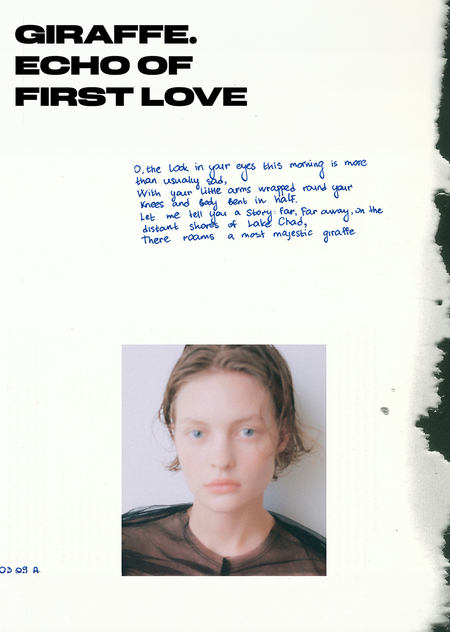 GIRAFFE.
ECHO OF
FIRST LOVE
O, the look in your eyes this morning is more
than usually sad,
With your little arms wrapped round your
knees and body bent in half.
Let me tell you a story: far, far away, on the
distant shores of Lake Chad,
There roams a most majestic giraffe
03 09 A